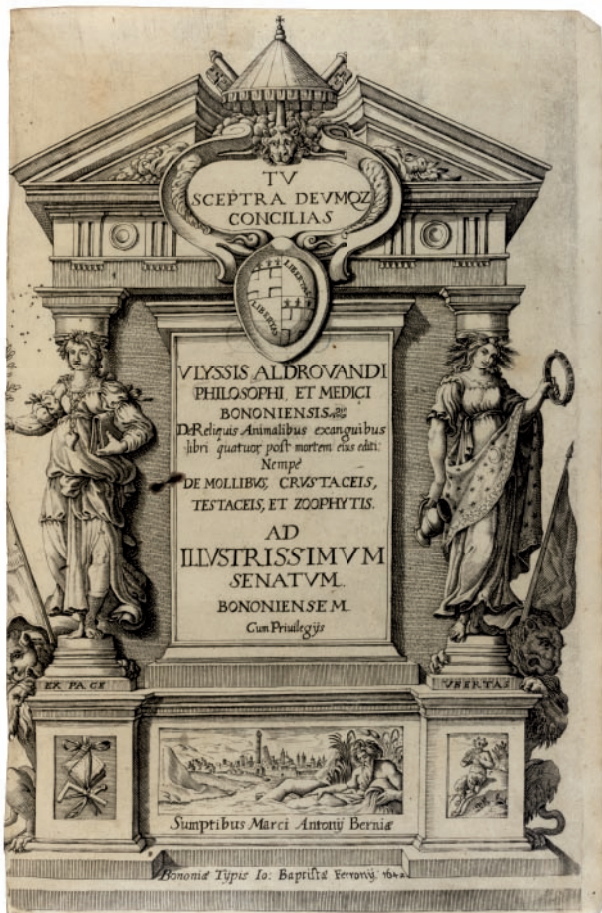 TV
SCEPTRA DEVMQZ
CONCILIAS
LIBERTAS
LIBERTAS
VLYSSIS ALDROVANDI
PHILOSOPHI ET MEDICI
BONONIENSIS
De Reliquis Animalibus exanguibus
libri quatuor post mortem eius editi:
Nempe
DE MOLLIBVS, CRVSTACEIS,
TESTACEIS, ET ZOOPHYTIS.
AD
ILLVSTRISSIMVM
SENATVM.
BONONIENSEM
Cum Priuilegijs
EX PACE
VBERTAS
Sumptibus Marci Antonij Berniæ
Bononiæ Typis Io: Baptistæ Ferronij 1642